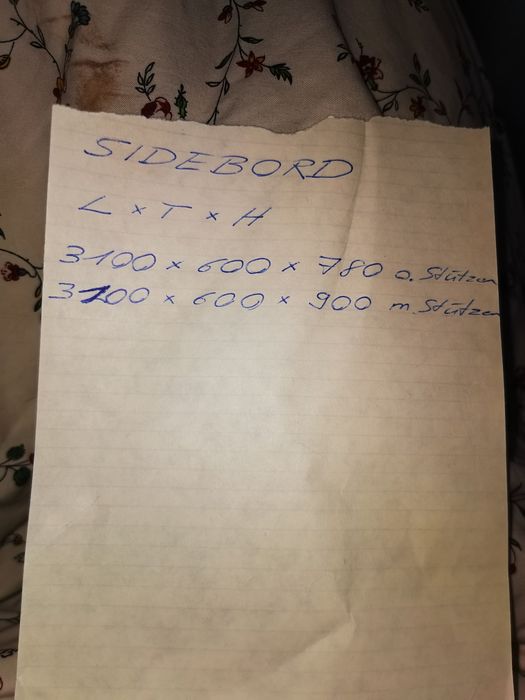 SIDEBORD
L × T × H
3100 × 600 × 780 o. Stützen
3100 × 600 × 900 m. Stützen